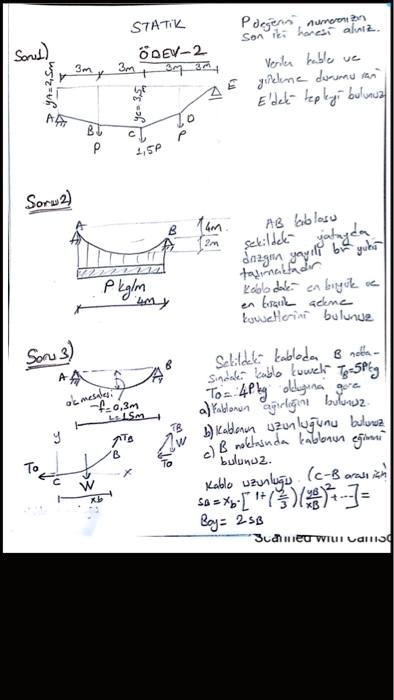 STATİK
ÖDEV-2
P değerini numaranızın
son iki hanesi alınız.
Soru1)
3m 3m 3m 3m
yA=2,5m
yc=3,5m
A B C D E
P 1,5P P
Verilen kablo ve
yükleme durumu için
E'deki tepkiyi bulunuz
Soru2)
A B
4m
2m
P kg/m
4m
AB kablosu
şekildeki yatayda
düzgün yayılı bir yükü
taşımaktadır
Kablodaki en büyük ve
en küçük çekme
kuvvetlerini bulunuz
Soru 3)
A B
ok mesafesi
f=0,3m
L=15m
Şekildeki kabloda B nokta-
sındaki kablo kuvveti TB=5Pkg
To=4Pkg olduğuna göre
a) Kablonun ağırlığını bulunuz.
b) Kablonun uzunluğunu bulunuz
c) B noktasında kablonun eğimini
bulunuz.
y
TB
B
To
C
W
x
xb
TB
W
To
Kablo uzunluğu (C-B arası için
SB=xb.[1+(2/3)(yB/xB)²+---]=
Boy=2SB
Scanned with CamSc